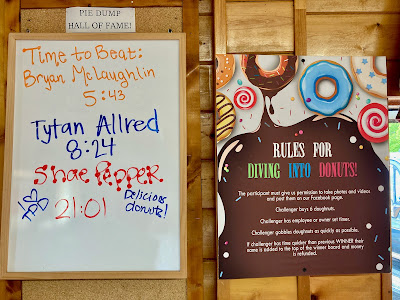 PIE DUMP
HALL OF FAME!
Time to Beat:
Bryan McLaughlin
5:43
Tytan Allred
8:24
Shoe Pepper
21:01
Delicious
donuts!
RULES FOR
DIVING INTO DONUTS!
The participant must give us permission to take photos and videos
and post them on our Facebook page.
Challenger buys 6 doughnuts.
Challenger has employee or owner set timer.
Challenger gobbles doughnuts as quickly as possible.
If challenger has time quicker than previous WINNER their
name is added to the top of the winner board and money
is refunded.